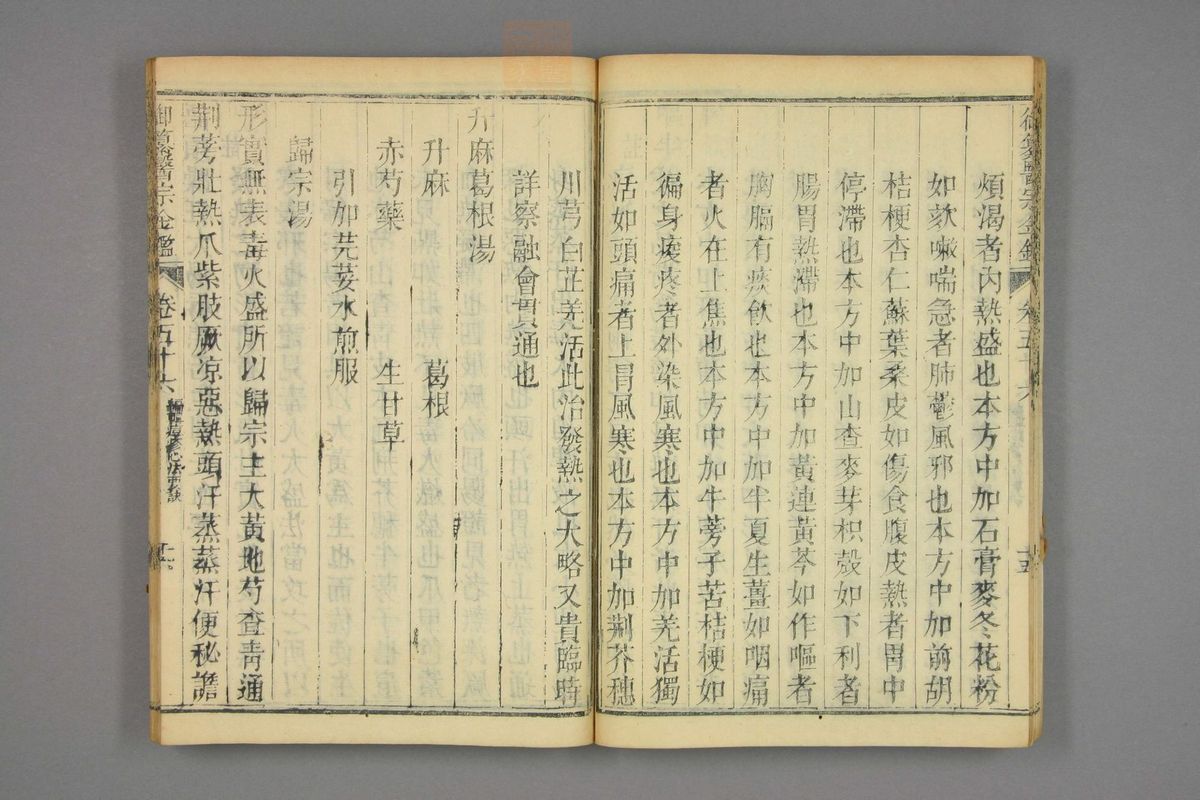 御纂醫宗金鑑 卷五十六
煩渴者內熱盛也本方中加石膏麥冬花粉
如欬嗽喘急者肺鬱風邪也本方中加前胡
桔梗杏仁蘇葉桑皮如傷食腹皮熱者胃中
停滯也本方中加山查麥芽枳殻如下利者
腸胃熱滯也本方中加黃連黃芩如作嘔者
胸膈有痰飲也本方中加半夏生薑如咽痛
者火在上焦也本方中加牛蒡子苦桔梗如
徧身痠疼者外染風寒也本方中加羌活獨
活如頭痛者上冒風寒也本方中加荆芥穗
川芎白芷羌活此治發熱之大略又貴臨時
詳察融會貫通也
升麻葛根湯
升麻 葛根
赤芍藥 生甘草
引加芫荽水煎服
歸宗湯
形實無表毒火盛所以歸宗主大黃地芍查靑通
荆蒡壯熱爪紫肢厥凉惡熱頭汗蒸蒸汗便秘譫
御纂醫宗金鑑 卷五十六